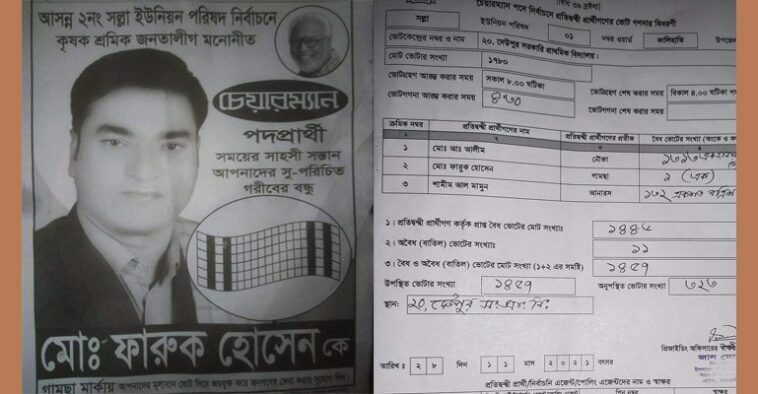 আসন্ন ২নং সল্লা ইউনিয়ন পরিষদ নির্বাচনে
কৃষক শ্রমিক জনতালীগ মনোনীত
চেয়ারম্যান
পদপ্রার্থী
সময়ের সাহসী সন্তান
আপনাদের সু-পরিচিত
গরীবের বন্ধু
মোঃ ফারুক হোসেন কে
গামছা মার্কায় আপনাদের মূল্যবান ভোট দিয়ে জয়যুক্ত করে জনগণের সেবা করার সুযোগ দিন।
চেয়ারম্যান পদে নির্বাচনে প্রতিদ্বন্দ্বী প্রার্থীগণের ভোট গণনার বিবরণী
সল্লা ইউনিয়ন পরিষদ ০১ নম্বর ওয়ার্ড কালিহাতি
ভোটকেন্দ্রের নম্বর ও নাম ২০. দেউপুর সরকারি প্রাথমিক বিদ্যালয়।
মোট ভোটার সংখ্যা ১৭৮০
ভোটগ্রহণ আরম্ভ করার সময় সকাল ৮.০০ ঘটিকা ভোটগ্রহণ শেষ করার সময় বিকাল ৪.০০ ঘটিকা
ভোটগণনা আরম্ভ করার সময় ৪:৩০ ভোটগণনা শেষ করার সময়
ক্রমিক নম্বর প্রতিদ্বন্দ্বী প্রার্থীগণের নাম প্রতিদ্বন্দ্বী প্রার্থীগণের প্রতীক বৈধ ভোটের সংখ্যা (অংকে ও
১ ২ ৩ ৪
১ মোঃ আঃ আলীম নৌকা
২ মোঃ ফারুক হোসেন গামছা ১ (এক)
৩ শামীম আল মামুন আনারস ১৩২ একশত বত্রিশ
১। প্রতিদ্বন্দ্বী প্রার্থীগণ কর্তৃক প্রাপ্ত বৈধ ভোটের মোট সংখ্যাঃ
২। অবৈধ (বাতিল) ভোটের সংখ্যাঃ ১১
৩। বৈধ ও অবৈধ (বাতিল) ভোটের মোট সংখ্যা (১+২ এর সমষ্টি)
উপস্থিত ভোটার সংখ্যা অনুপস্থিত ভোটার সংখ্যা
স্থান: ২০, দেউপুর
প্রিজাইডিং অফিসারের স্বাক্ষর
তারিখ ঃ ২ ৮ দিন ১ ১ মাস ২ ০ ২ ১ বৎসর
প্রতিদ্বন্দ্বী প্রার্থী/নির্বাচনি এজেন্ট/পোলিং এজেন্টদের নাম ও স্বাক্ষর